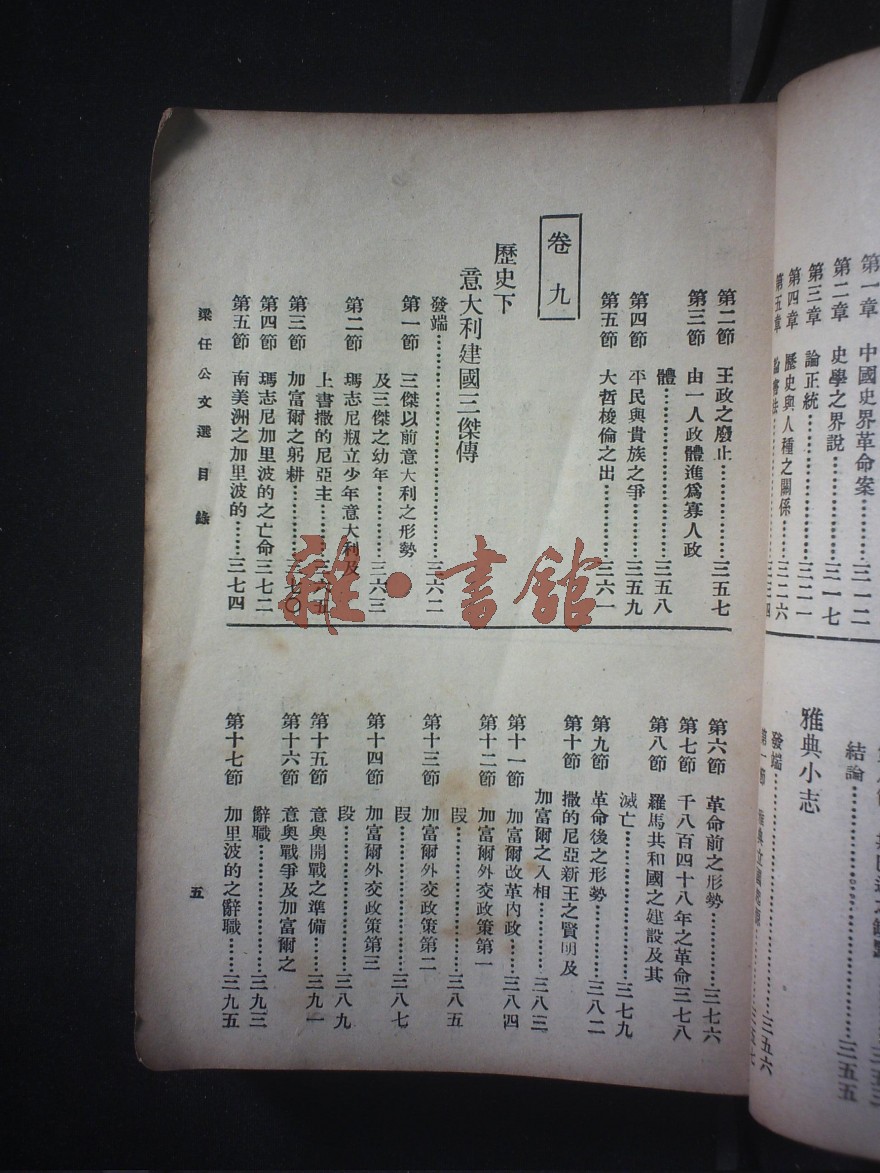 第一章　中國史界革命案……三一二
第二章　史學之界說……三一七
第三章　論正統……三二一
第四章　歷史與人種之關係……三二六
第五章
結論……三五五
雅典小志
發端……三五六
第一節
第二節　王政之廢止……三五七
第三節　由一人政體進爲寡人政
體……三五八
第四節　平民與貴族之爭……三五九
第五節　大哲梭倫之出……三六一
卷九
歷史下
意大利建國三傑傳
發端……三六二
第一節　三傑以前意大利之形勢
及三傑之幼年……三六三
第二節　瑪志尼剏立少年意大利及
上書撒的尼亞主
第三節　加富爾之躬耕
第四節　瑪志尼加里波的之亡命三七二
第五節　南美洲之加里波的……三七四
第六節　革命前之形勢……三七六
第七節　千八百四十八年之革命三七八
第八節　羅馬共和國之建設及其
滅亡……三七九
第九節　革命後之形勢……三八二
第十節　撒的尼亞新王之賢明及
加富爾之入相……三八三
第十一節　加富爾改革內政……三八四
第十二節　加富爾外交政策第一
段……三八五
第十三節　加富爾外交政策第二
段……三八七
第十四節　加富爾外交政策第三
段……三八九
第十五節　意奧開戰之準備……三九一
第十六節　意奧戰爭及加富爾之
辭職……三九三
第十七節　加里波的之辭職……三九五
梁任公文選目錄
五
雜·書館